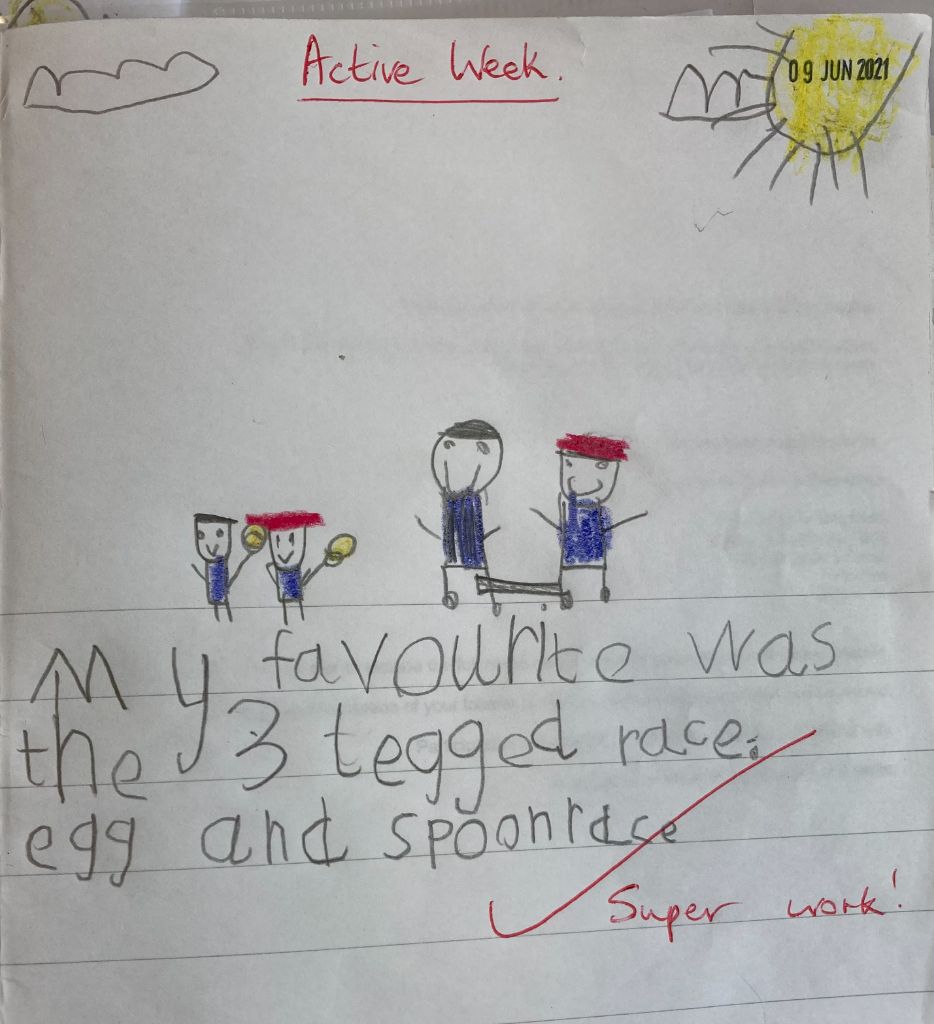 Active Week.
09 JUN 2021
My favourite was
the 3 tegged race.
egg and spoonrace
Super work!